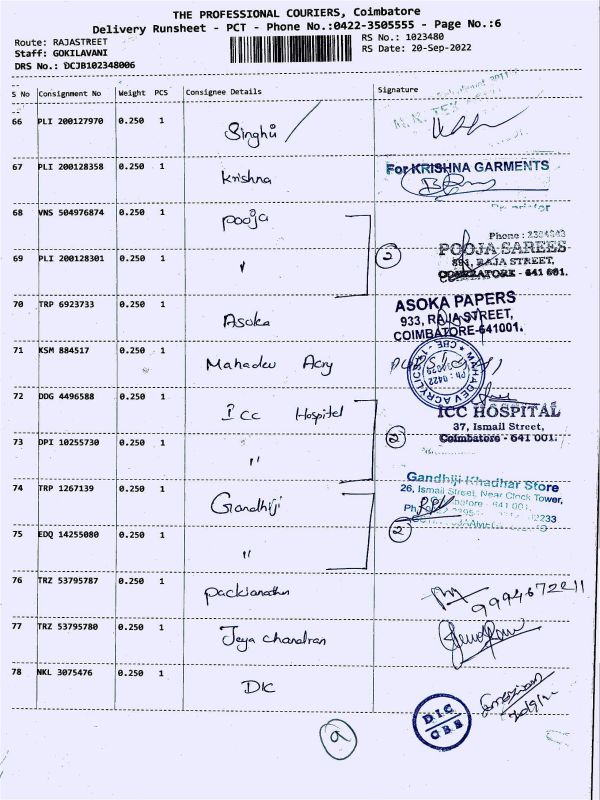 THE PROFESSIONAL COURIERS, Coimbatore
Delivery Runsheet - PCT - Phone No.:0422-3505555 - Page No.:6
Route: RAJASTREET
Staff: GOKILAVANI
DRS No.: DCJB102348006
RS No.: 1023480
RS Date: 20-Sep-2022
S No Consignment No Weight PCS Consignee Details Signature
66 PLI 200127970 0.250 1 Singhvi
67 PLI 200128358 0.250 1 Krishna For KRISHNA GARMENTS
68 VNS 504976874 0.250 1 Pooja
Phone : 2394943
69 PLI 200128301 0.250 1 " 2 POOJA SAREES
891, RAJA STREET,
COIMBATORE - 641 001.
70 TRP 6923733 0.250 1 Asoka ASOKA PAPERS
933, RAJA STREET,
COIMBATORE-641001.
71 KSM 884517 0.250 1 Mahadev Acry MAHADEV ACRYLICS
72 DDG 4496588 0.250 1 ICC Hospital ICC HOSPITAL
37, Ismail Street,
Coimbatore - 641 001.
73 DPI 10255730 0.250 1 " 2
74 TRP 1267139 0.250 1 Gandhiji Gandhiji Khadhar Store
26, Ismail Street, Near Clock Tower,
Coimbatore - 641 001
75 EDQ 14255080 0.250 1 " 2
76 TRZ 53795787 0.250 1 Packianathan 9994672211
77 TRZ 53795780 0.250 1 Jeya Chandran
78 NKL 3075476 0.250 1 DIC DIC CBE
9